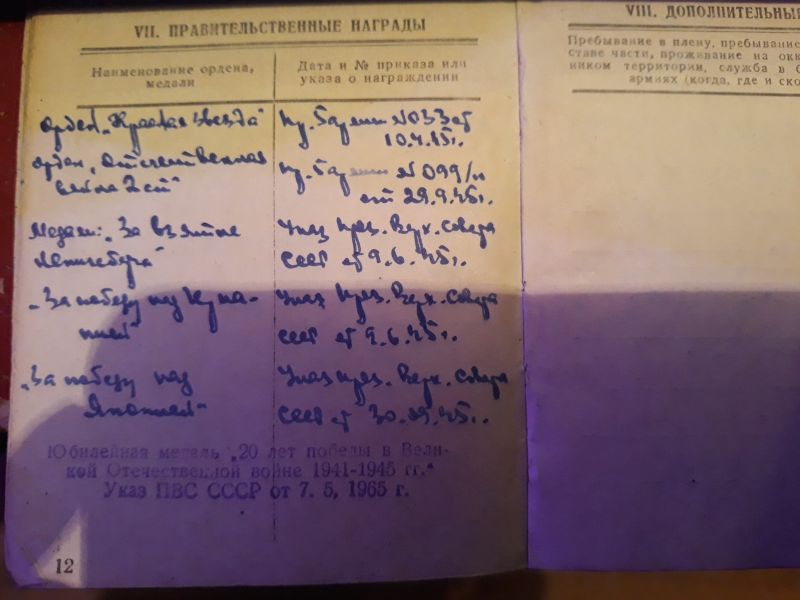 VII. ПРАВИТЕЛЬСТВЕННЫЕ НАГРАДЫ
Наименование ордена, медали
Дата и № приказа или указа о награждении
орден „Красная звезда“
№ 033 от
10.4.45г.
орден „Отечественная
война 2 ст“
№ 099/
от 29.9.45г.
Медали: „За взятие
Указ През. Верх. Совета
СССР от 9.6.45г.
„За победу над
Указ През. Верх. Совета
СССР от 9.6.45г.
„За победу над
Японией“
Указ През. Верх. Совета
СССР от 30.09.45г.
Юбилейная медаль „20 лет победы в Вели-
кой Отечественной войне 1941-1945 гг.“
Указ ПВС СССР от 7. 5, 1965 г.
12
VIII. ДОПОЛНИТЕЛЬНЫЕ
Пребывание в плену, пребывание
ставе части, проживание на
ником территории, служба в б
армиях (когда, где и